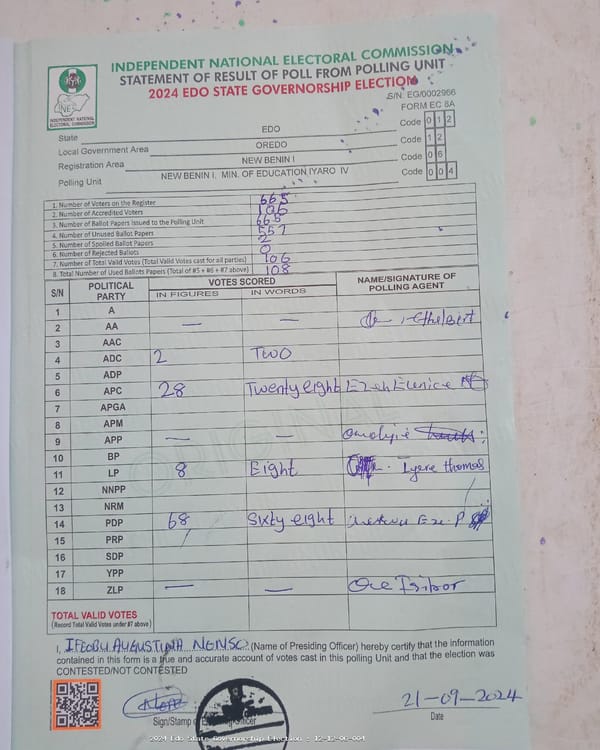 INDEPENDENT NATIONAL ELECTORAL COMMISSION
STATEMENT OF RESULT OF POLL FROM POLLING UNIT
2024 EDO STATE GOVERNORSHIP ELECTION
S/N: EG/0002966
FORM EC 8A
INEC
INDEPENDENT NATIONAL ELECTORAL COMMISSION
State EDO Code 0 1 2
Local Government Area OREDO Code 1 2
Registration Area NEW BENIN I Code 0 6
Polling Unit NEW BENIN I, MIN. OF EDUCATION IYARO IV Code 0 0 4
1. Number of Voters on the Register 665
2. Number of Accredited Voters 106
3. Number of Ballot Papers Issued to the Polling Unit 665
4. Number of Unused Ballot Papers 557
5. Number of Spoiled Ballot Papers 2
6. Number of Rejected Ballots 0
7. Number of Total Valid Votes (Total Valid Votes cast for all parties) 106
8. Total Number of Used Ballots Papers (Total of #5 + #6 + #7 above) 108
S/N POLITICAL PARTY VOTES SCORED NAME/SIGNATURE OF POLLING AGENT
IN FIGURES IN WORDS
1 A
2 AA — — Ethelbert
3 AAC
4 ADC 2 TWO
5 ADP
6 APC 28 Twenty eight Ezeh Eunice
7 APGA
8 APM
9 APP — —
10 BP
11 LP 8 Eight Iyere thomas
12 NNPP
13 NRM
14 PDP 68 Sixty eight
15 PRP
16 SDP
17 YPP
18 ZLP — —
TOTAL VALID VOTES
(Record Total Valid Votes under #7 above)
I, AUGUSTINA (Name of Presiding Officer) hereby certify that the information
contained in this form is a true and accurate account of votes cast in this polling Unit and that the election was
CONTESTED/NOT CONTESTED
21-09-2024
Sign/Stamp of Officer Date
2024 Edo State Governorship Election - 12-12-06-004